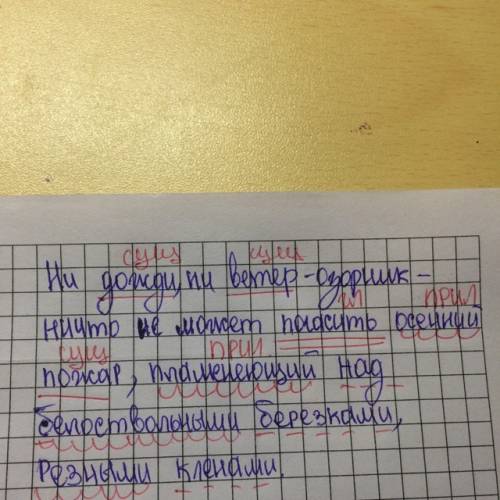 сущ сущ
Ни дожди, ни ветер-озорник-
гл прил
ничто не может погасить осенний
сущ прил.
пожар, пламенеющий над
белоствольными березками,
резными кленами.